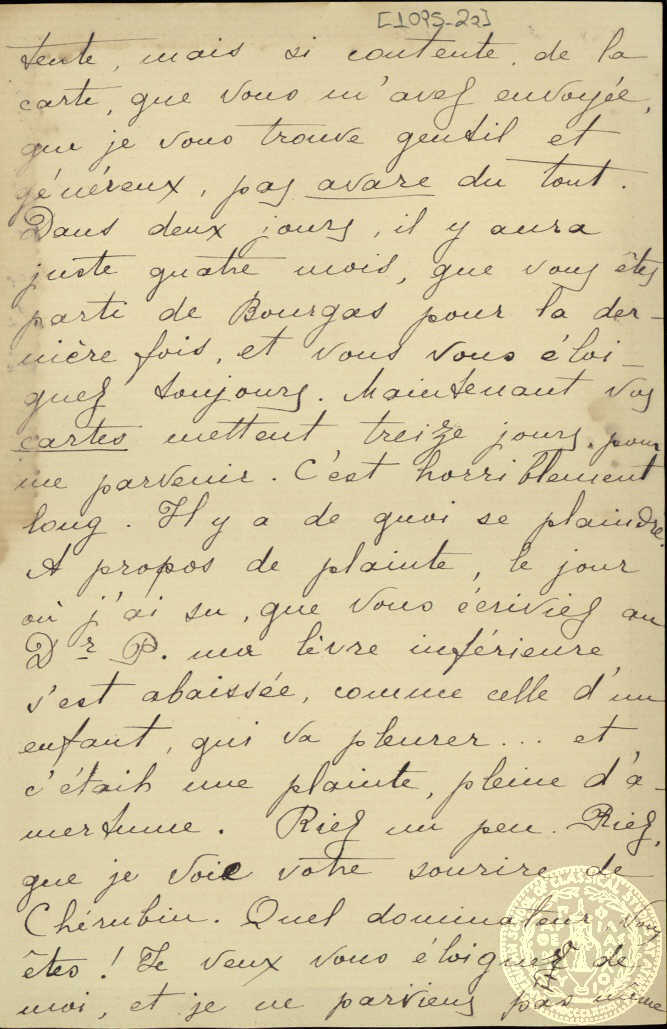 [1095-2a]
tente, mais si contente, de la
carte, que vous m'avez envoyée,
que je vous trouve gentil et
généreux, pas avare du tout.
Dans deux jours, il y aura
juste quatre mois, que vous êtes
parti de Bourgas pour la der-
nière fois, et vous vous éloi-
gnez toujours. Maintenant vos
cartes mettent treize jours pour
me parvenir. C'est horriblement
long. Il y a de quoi se plaindre.
A propos de plainte, le jour
où j'ai su, que vous écriviez au
Dr P. ma lèvre inférieure
s'est abaissée, comme celle d'un
enfant, qui va pleurer... et
c'était une plainte, pleine d'a-
mertume. Riez un peu. Riez,
que je voie votre sourire de
Chérubin. Quel dominateur, vous
êtes! Je veux vous éloigner de
moi, et je ne parviens pas même